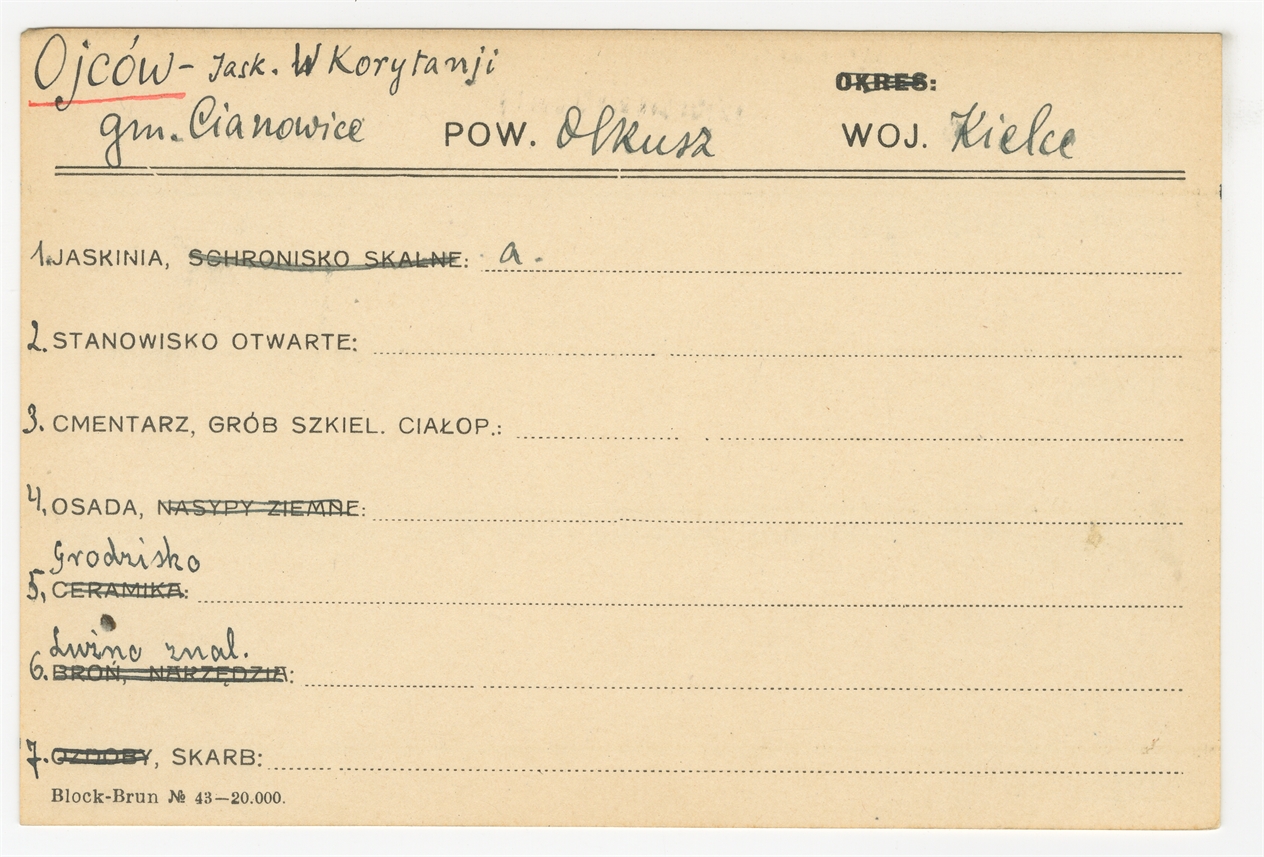 Ojców - Jask. W Korytanji
OKRES:
gm. Cianowice POW. Olkusz WOJ. Kielce
1. JASKINIA, SCHRONISKO SKALNE: a.
2. STANOWISKO OTWARTE:
3. CMENTARZ, GRÓB SZKIEL. CIAŁOP.:
4. OSADA, NASYPY ZIEMNE:
Grodzisko
5. CERAMIKA:
Luźno znal.
6. BROŃ, NARZĘDZIA:
7. OZDOBY, SKARB:
Block-Brun № 43—20.000.